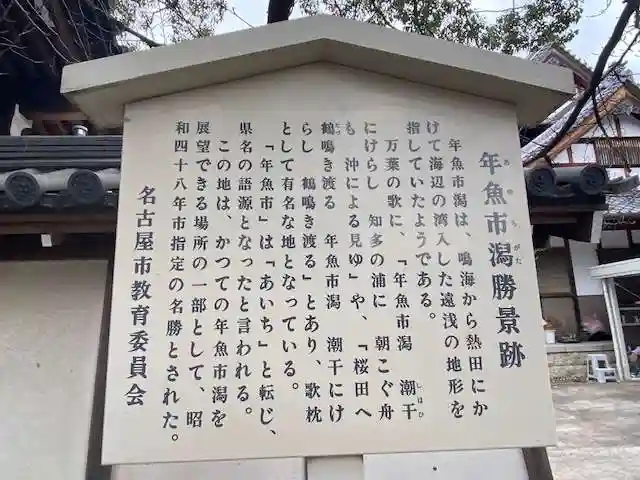 年魚市潟勝景跡
あゆちがた
年魚市潟は、鳴海から熱田にか
けて海辺の湾入した遠浅の地形を
指していたようである。
万葉の歌に、「年魚市潟　潮干
しほひ
にけらし　知多の浦に　朝こぐ舟
も　沖による見ゆ」や、「桜田へ
鶴鳴き渡る　年魚市潟　潮干にけ
たづ
らし　鶴鳴き渡る」とあり、歌枕
として有名な地となっている。
「年魚市」は「あいち」と転じ、
県名の語源となったと言われる。
この地は、かつての年魚市潟を
展望できる場所の一部として、昭
和四十八年市指定の名勝とされた。
名古屋市教育委員会